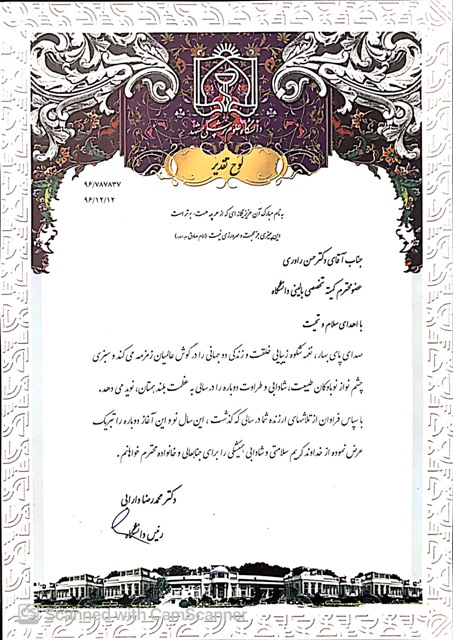 دانشگاه علوم پزشکی مشهد
لوح تقدیر
۹۶/۷۸۷۸۳۷
۹۶/۱۲/۱۲
به نام مبارک آن عزیز یگانه ای که از هر چه هست برتر است
دین چیزی جز محبت و مهرورزی نیست
جناب آقای دکتر حسن راوری
عضو محترم کمیته تخصصی بالینی دانشگاه
با اهدای سلام و تحیت
صدای پای بهار، نغمه شکوه زیبایی خلقت و زندگی دو جهانی را در گوش عالمیان زمزمه می کند و سبزی
چشم نواز نوباوگان طبیعت، شادابی و طراوت دوباره را در سالی به عظمت بلند بهمتان، نوید می دهد.
با سپاس فراوان از تلاشهای ارزنده شما در سالی که گذشت، این سال نو و این آغاز دوباره را تبریک
عرض نموده از خداوند کریم سلامتی و شادابی همیشگی را برای جنابعالی و خانواده محترم خواهانم.
دکتر محمدرضا دارابی
رئیس دانشگاه
CS Scanned with CamScanner